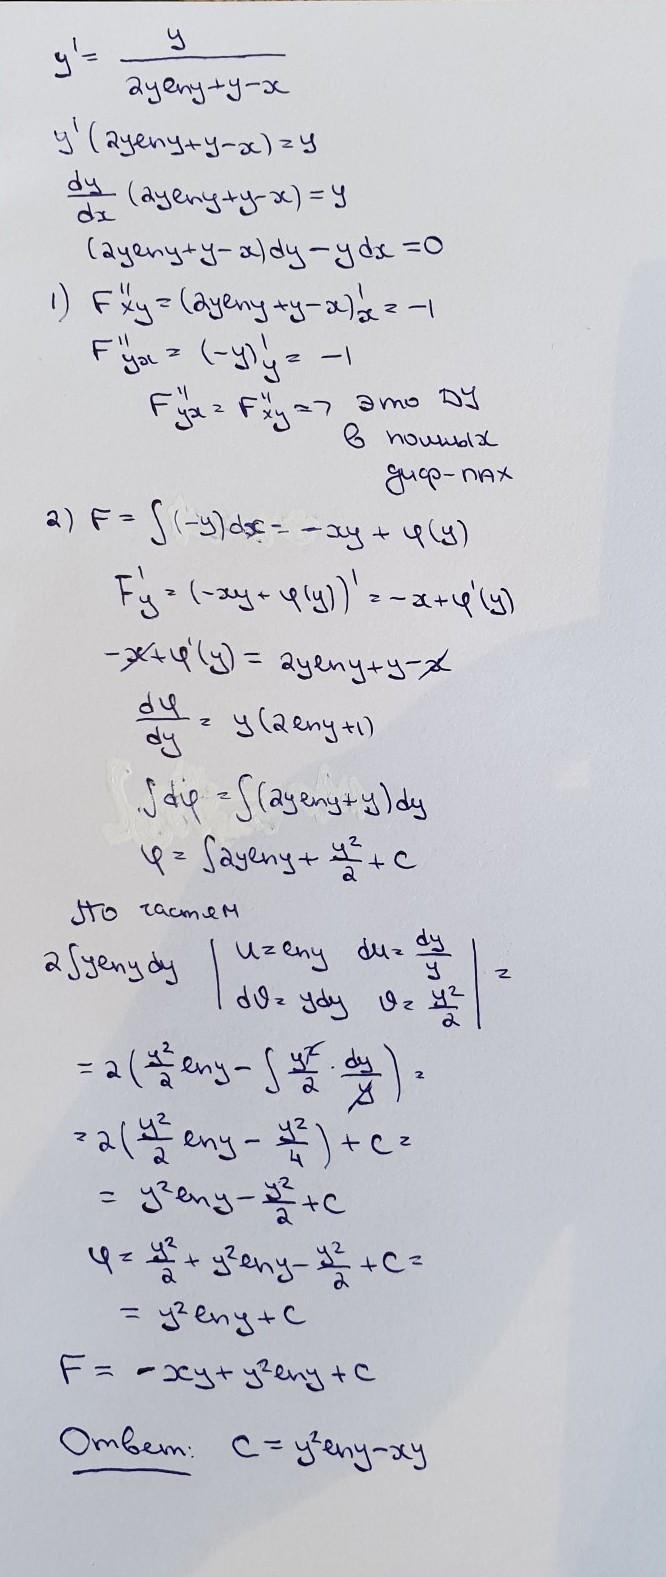 y' = y / (2y ln y + y - x)
y'(2y ln y + y - x) = y
dy/dx (2y ln y + y - x) = y
(2y ln y + y - x)dy - y dx = 0
1) F''xy = (2y ln y + y - x)'x = -1
F''yx = (-y)'y = -1
F''yx = F''xy => это ДУ
в полных
диф-лах
2) F = ∫(-y)dx = -xy + φ(y)
F'y = (-xy + φ(y))' = -x + φ'(y)
-x + φ'(y) = 2y ln y + y - x
dφ/dy = y(2 ln y + 1)
∫dφ = ∫(2y ln y + y)dy
φ = ∫2y ln y + y²/2 + C
По частям
2∫y ln y dy | u = ln y du = dy/y dv = y dy v = y²/2 | =
= 2(y²/2 ln y - ∫ y²/2 · dy/y) =
= 2(y²/2 ln y - y²/4) + C =
= y² ln y - y²/2 + C
φ = y²/2 + y² ln y - y²/2 + C =
= y² ln y + C
F = -xy + y² ln y + C
Ответ: C = y² ln y - xy